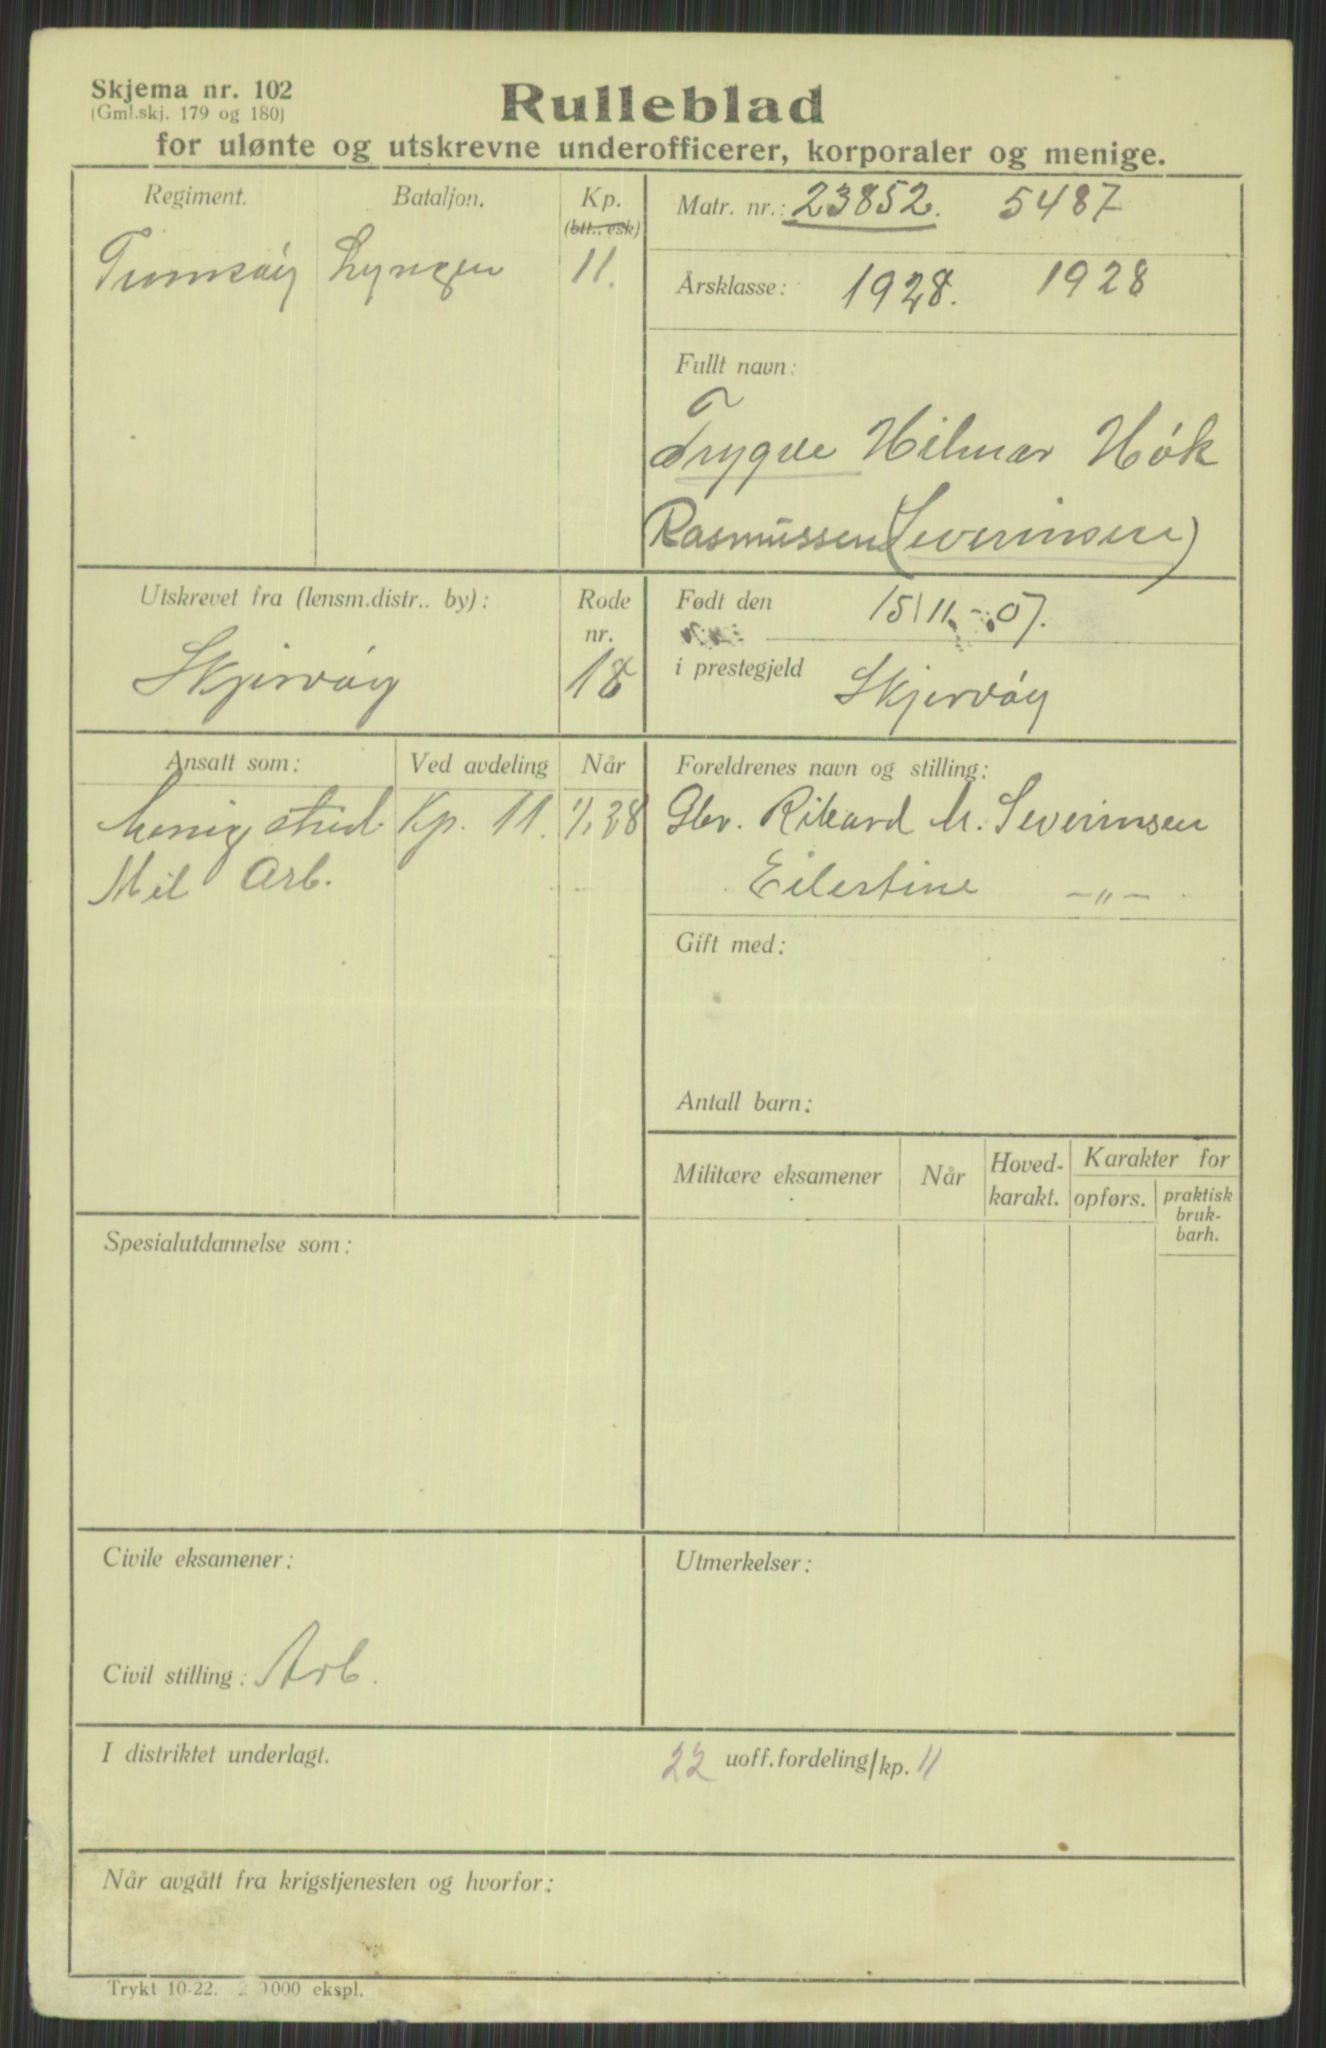 Skjema nr. 102
(Gml.skj. 179 og 180)
Rulleblad
for ulønte og utskrevne underofficerer, korporaler og menige.
Regiment. Bataljon. Kp.
(btt., esk)
Lyngen 11.
Matr. nr.: 23852. 5487
Årsklasse: 1928. 1928
Fullt navn:
Trygve Hilmar Høk
Rasmussen (Severinsen)
Utskrevet fra (lensm.distr.. by): Rode
nr.
Skjervøy 18
Født den 15/11.-07.
i prestegjeld Skjervøy
Ansatt som: Ved avdeling Når
Menig Kp. 11.
Mil Arb.
Foreldrenes navn og stilling:
Gbr. Rikard M. Severinsen
Eilertine —„—
Gift med:
Antall barn:
Militære eksamener Når Hoved-
karakt. Karakter for
opførs. praktisk
bruk-
barh.
Spesialutdannelse som:
Civile eksamener:
Civil stilling: Arb.
Utmerkelser:
I distriktet underlagt.
22 uoff.fordeling/kp. 11
Når avgått fra krigstjenesten og hvorfor:
Trykt 10-22. 000 ekspl.